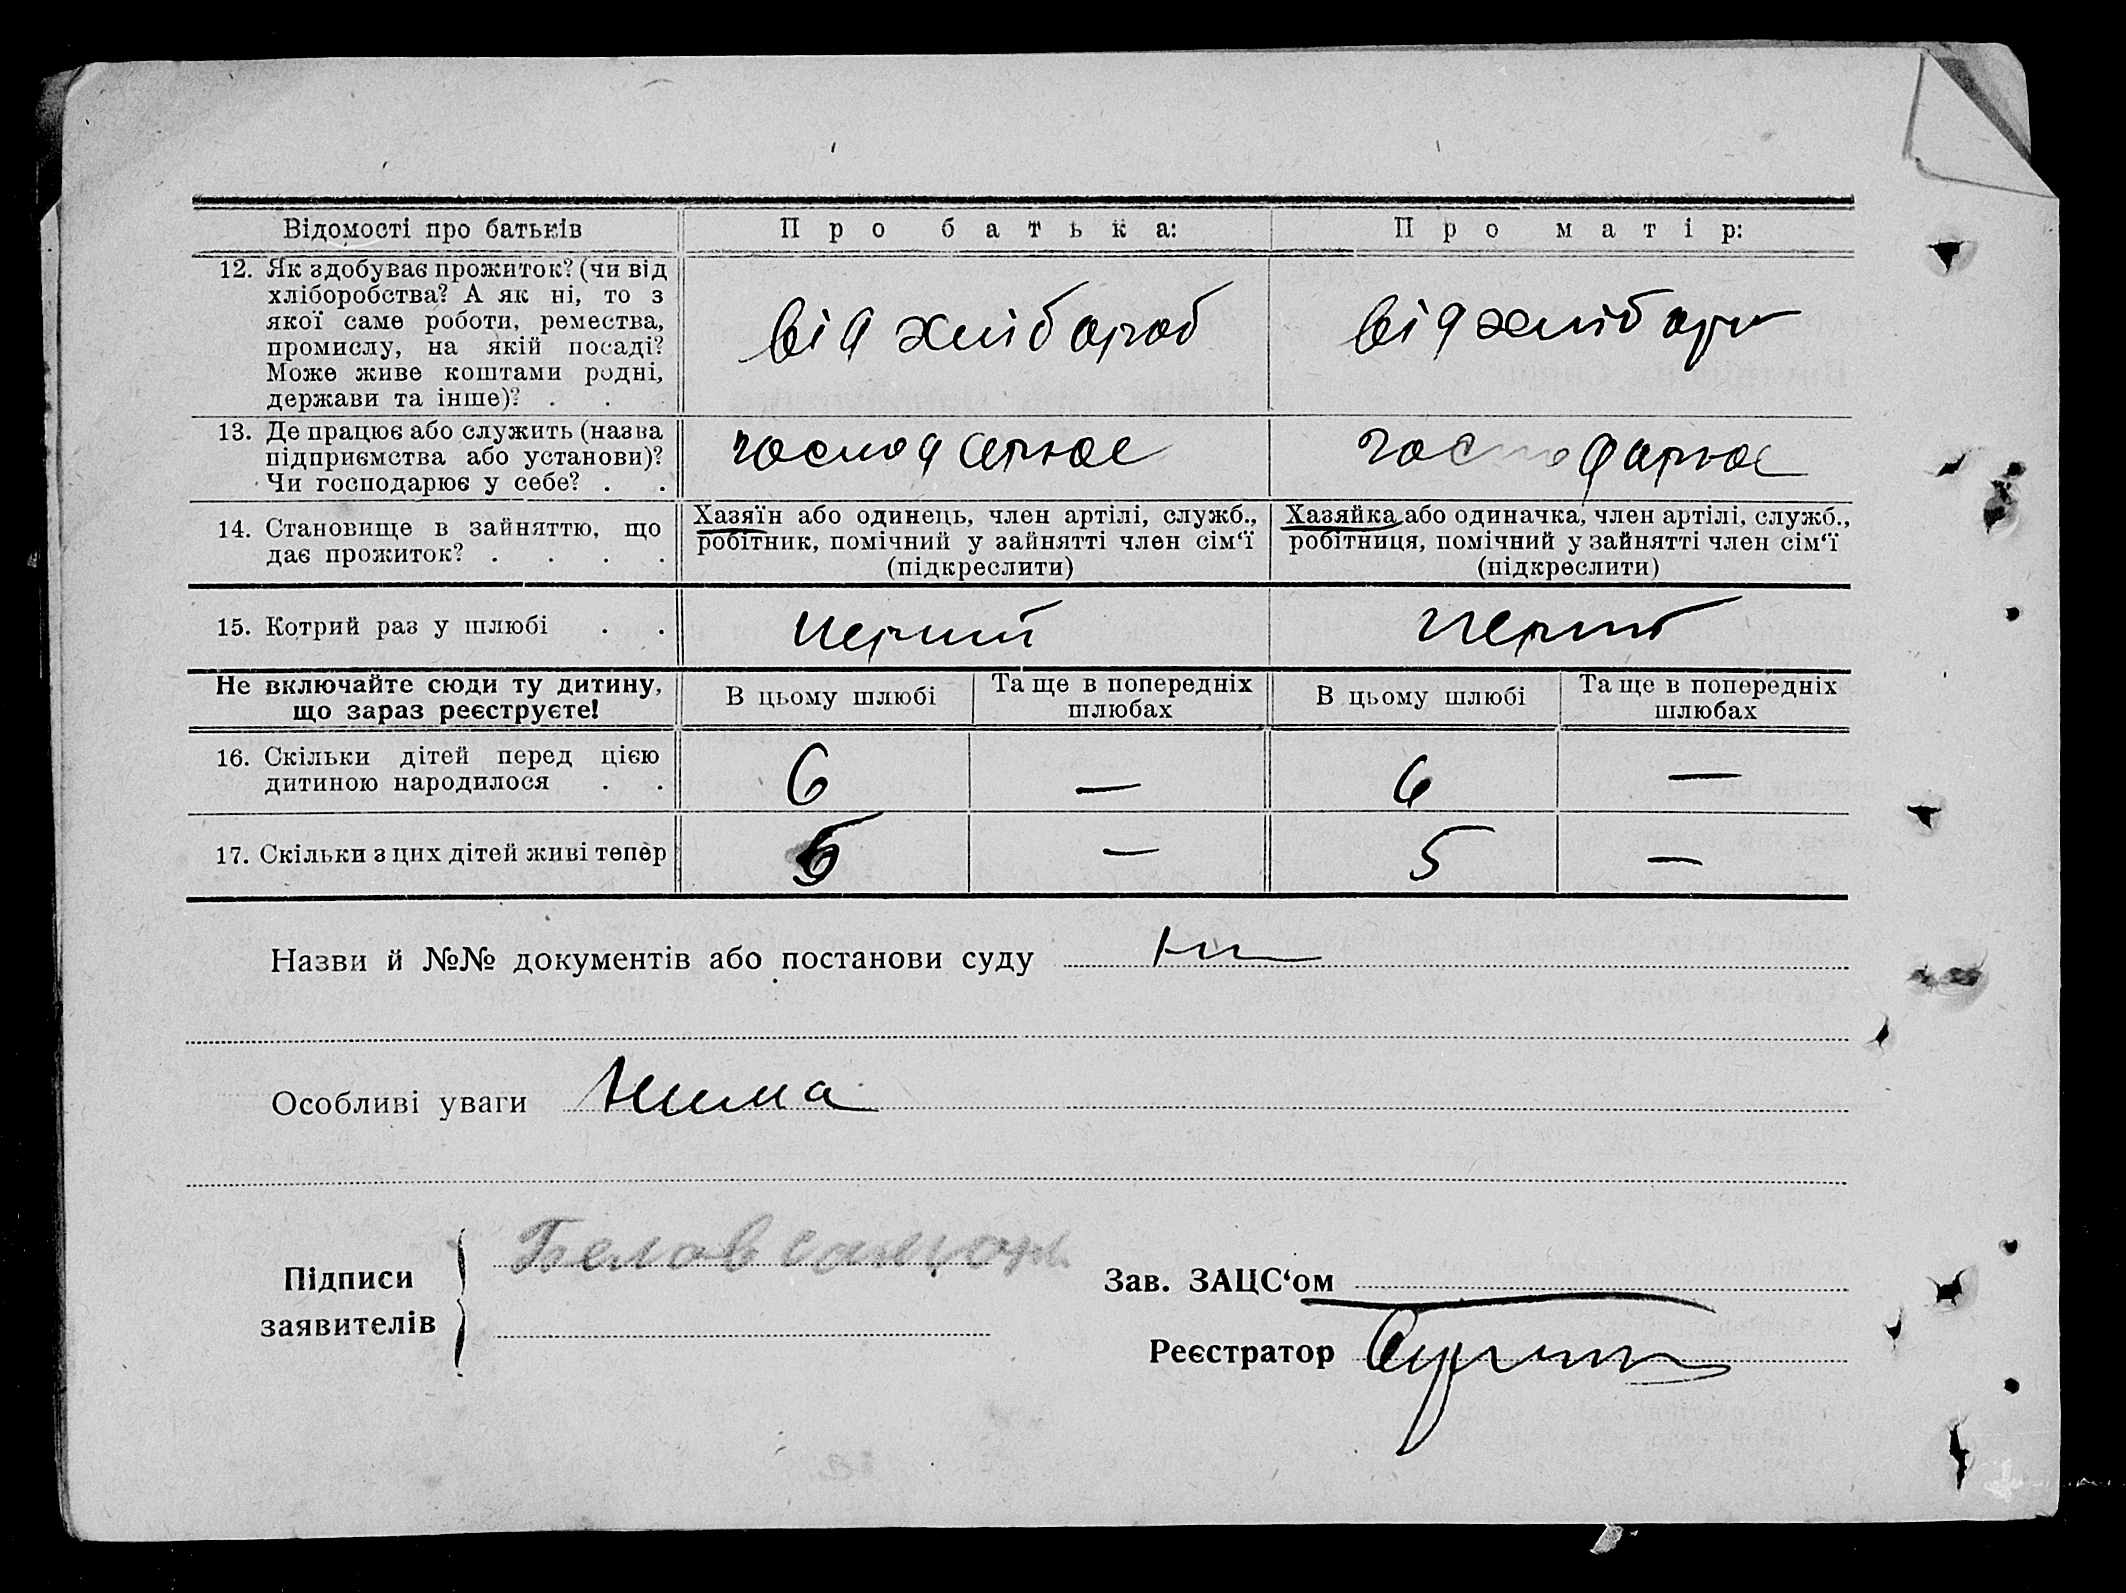 Відомості про батьків
Про батька:
Про матір:
12. Як здобуває прожиток? (чи від
хліборобства? А як ні, то з
якої саме роботи, ремества,
промислу, на якій посаді?
Може живе коштами родні,
держави та інше)? . .
від хлібороб
від хлібор
13. Де працює або служить (назва
підприємства або установи)?
Чи господарює у себе? . .
господарює
господарює
14. Становище в зайняттю, що
дає прожиток? . . . .
Хазяїн або одинець, член артілі, служб.,
робітник, помічний у зайнятті член сім‘ї
(підкреслити)
Хазяйка або одиначка, член артілі, служб.,
робітниця, помічний у зайнятті член сім‘ї
(підкреслити)
15. Котрий раз у шлюбі . .
перший
перший
Не включайте сюди ту дитину,
що зараз реєструєте!
В цьому шлюбі
Та ще в попередніх
шлюбах
В цьому шлюбі
Та ще в попередніх
шлюбах
16. Скільки дітей перед цією
дитиною народилося . .
6 — 6 —
17. Скільки з цих дітей живі тепер
5 — 5 —
Назви й №№ документів або постанови суду
Особливі уваги Нима
Підписи
заявителів
Белов
Зав. ЗАЦС‘ом
Реєстратор